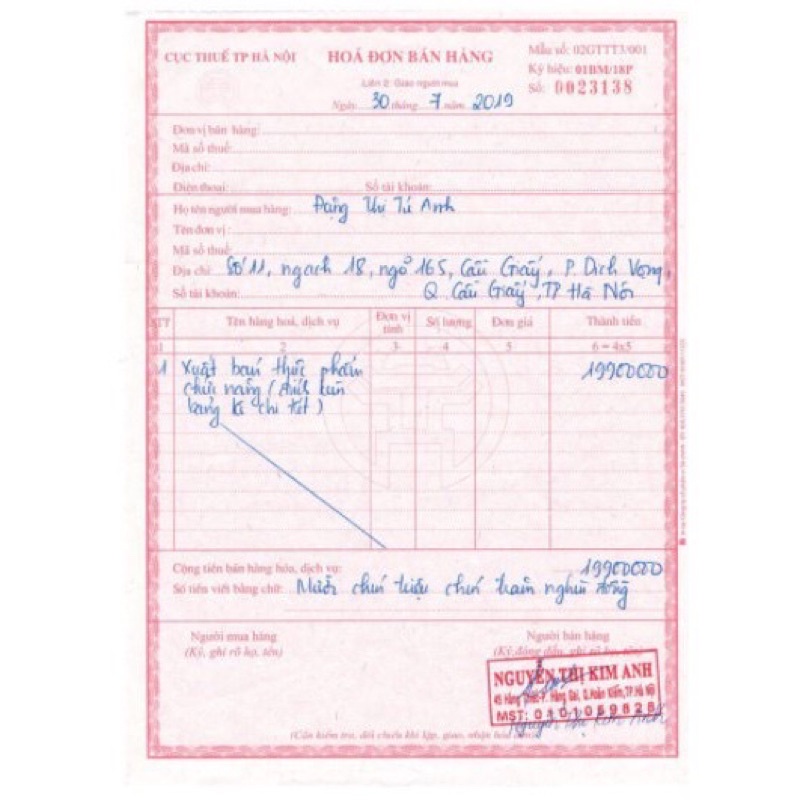 CỤC THUẾ TP HÀ NỘI
HOÁ ĐƠN BÁN HÀNG
Mẫu số: 02GTTT3/001
Liên 2: Giao người mua
Ký hiệu: 01BM/18P
Ngày 30 tháng 7 năm 2019
Số: 0023138
Đơn vị bán hàng:
Mã số thuế:
Địa chỉ:
Điện thoại: Số tài khoản:
Họ tên người mua hàng: Đặng Thị Tú Anh
Tên đơn vị:
Mã số thuế:
Địa chỉ: Số 11, ngách 18, ngõ 165, Cầu Giấy, P. Dịch Vọng,
Số tài khoản: Q. Cầu Giấy, TP Hà Nội
STT Tên hàng hoá, dịch vụ Đơn vị tính Số lượng Đơn giá Thành tiền
1 2 3 4 5 6 = 4x5
1 Xuất bán thực phẩm 19900000
chức năng (đính kèm
bảng kê chi tiết)
Cộng tiền bán hàng hóa, dịch vụ: 19900000
Số tiền viết bằng chữ: Mười chín triệu chín trăm nghìn đồng
Người mua hàng Người bán hàng
(Ký, ghi rõ họ, tên) (Ký, đóng dấu, ghi rõ họ, tên)
NGUYỄN THỊ KIM ANH
P. Hàng Gai, Q.Hoàn Kiếm, TP.Hà Nội
MST:
Nguyễn Thị Kim Anh
(Cần kiểm tra, đối chiếu khi lập, giao, nhận hóa đơn)